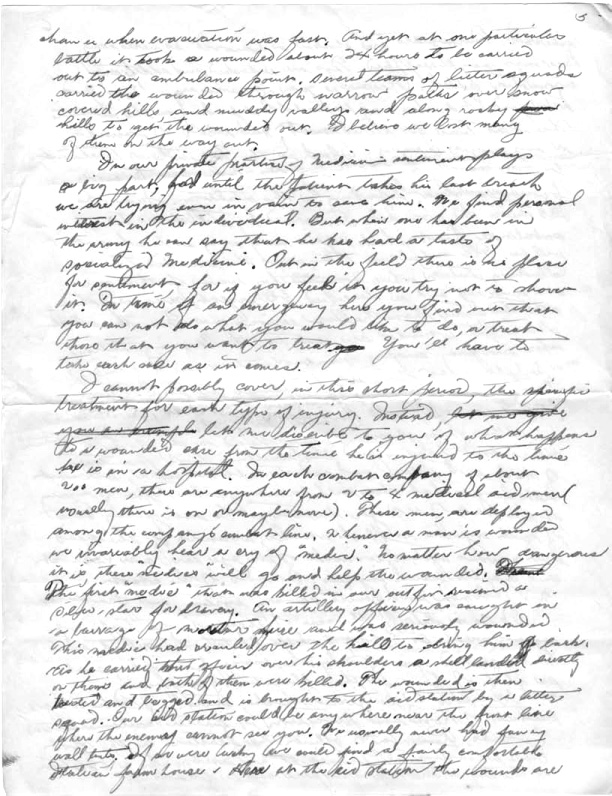 5
when evacuation was fast. And yet at one particular
battle it took a wounded about 24 hours to be carried
out to an ambulance point. Several teams of litter squads
carried the wounded through narrow paths over snow
covered hills, and muddy valleys and along rocky
hills to get the wounded out. I believe we lost many
of them on the way out.
In our private practice of Medicine sentiment plays
a big part, and until the patient takes his last breath
we are trying even in vain to save him. We find personal
interest in the individual. But when one has been in
the army he can say that he has had a taste of
socialized Medicine. Out in the field there is no place
for sentiment for if you feel it you try not to show
it. In time of an emergency here you find out that
you can not do what you would like to do, or treat
those that you want to treat You'll have to
take each case as it comes.
I cannot possibly cover, in this short period, the specific
treatment for each type of injury. Instead, let me give
you an example let me describe to you of what happens
to a wounded case from the time he is injured to the time
he is in a hospital. In each combat company of about
200 men, there are anywhere from 2 to 4 medical aid men (
usually there is one or maybe more). These men, are deployed
among the company's combat line. Whenever a man is wounded
we invariably hear a cry of "medic." No matter how dangerous
it is, these "medics" will go and help the wounded.
The first "medic" that was killed in our outfit received a
silver star for bravery. An artillery officer was caught in
a barrage of mortar fire and was seriously wounded
This medic had crawled over the hill to bring him back.
As he carried that officer over his shoulders a shell landed directly
on them and both of them were killed. The wounded is then
treated and tagged and is brought to the aid station by a litter
squad. Our aid station could be any where near the front line
where the enemy cannot see you. We usually never had fancy
wall tents. If we were lucky we could find a fairly comfortable
Italian farm house. Here at the aid station the wounds are